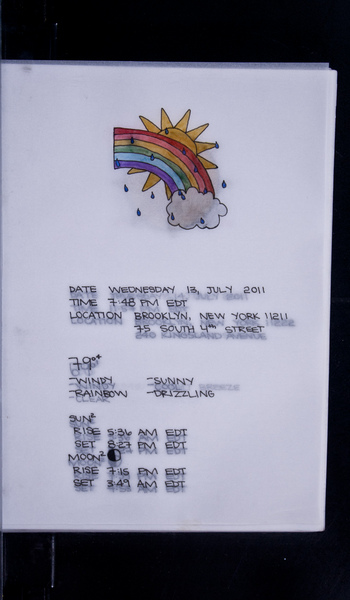 DATE WEDNESDAY 13, JULY 2011
TIME 7:48 PM EDT
LOCATION BROOKLYN, NEW YORK 11211
75 SOUTH 4th STREET
79°F
-WINDY -SUNNY
-RAINBOW -DRIZZLING
SUN²
RISE 5:36 AM EDT
SET 8:27 PM EDT
MOON²
RISE 7:15 PM EDT
SET 3:49 AM EDT